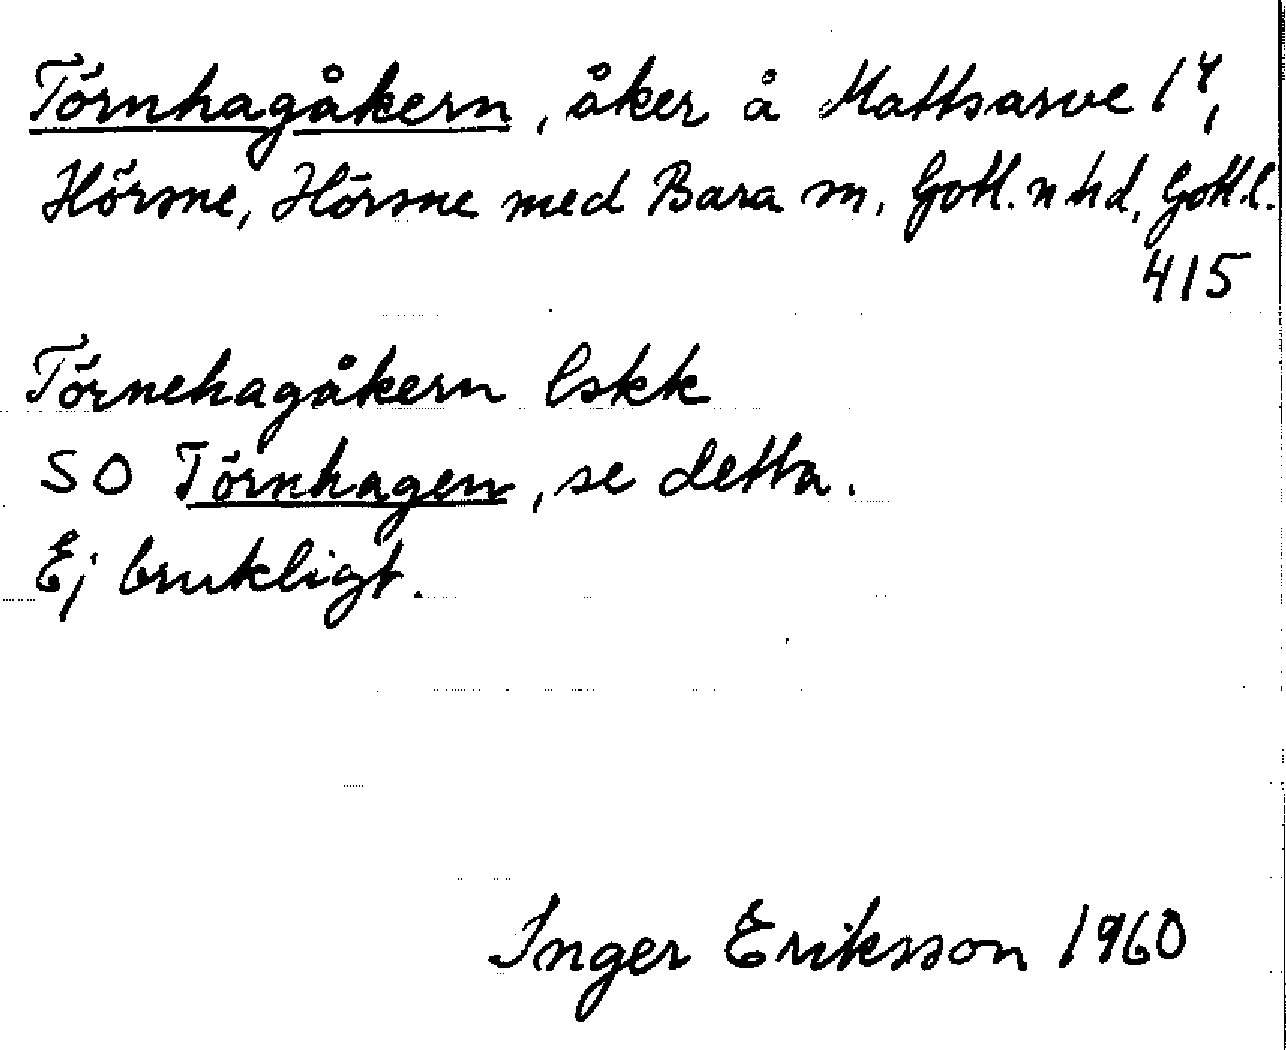 Törnhagåkern, åker å Mattsarve 1⁴,
Hörsne, Hörsne med Bara sn, Gotl. n hd, Gotl.
415
Törnehagåkern lskk
SO Törnhagen, se detta.
Ej brukligt.
Inger Eriksson 1960